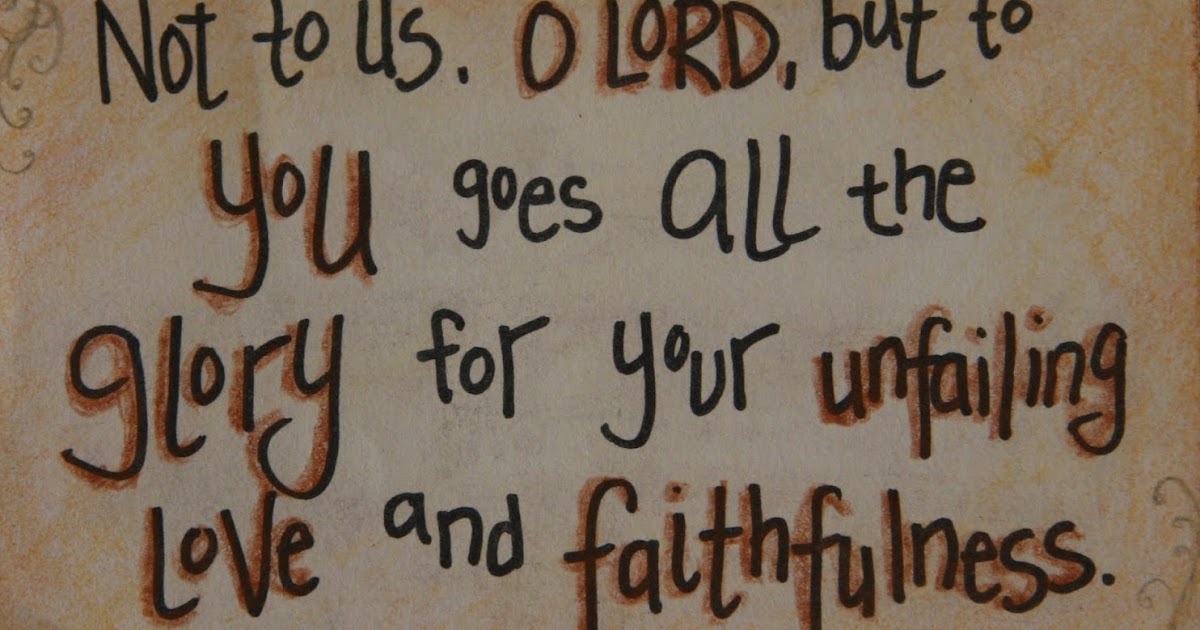 Not to us. O LORD, but to
you goes all the
glory for your unfailing
love and faithfulness.